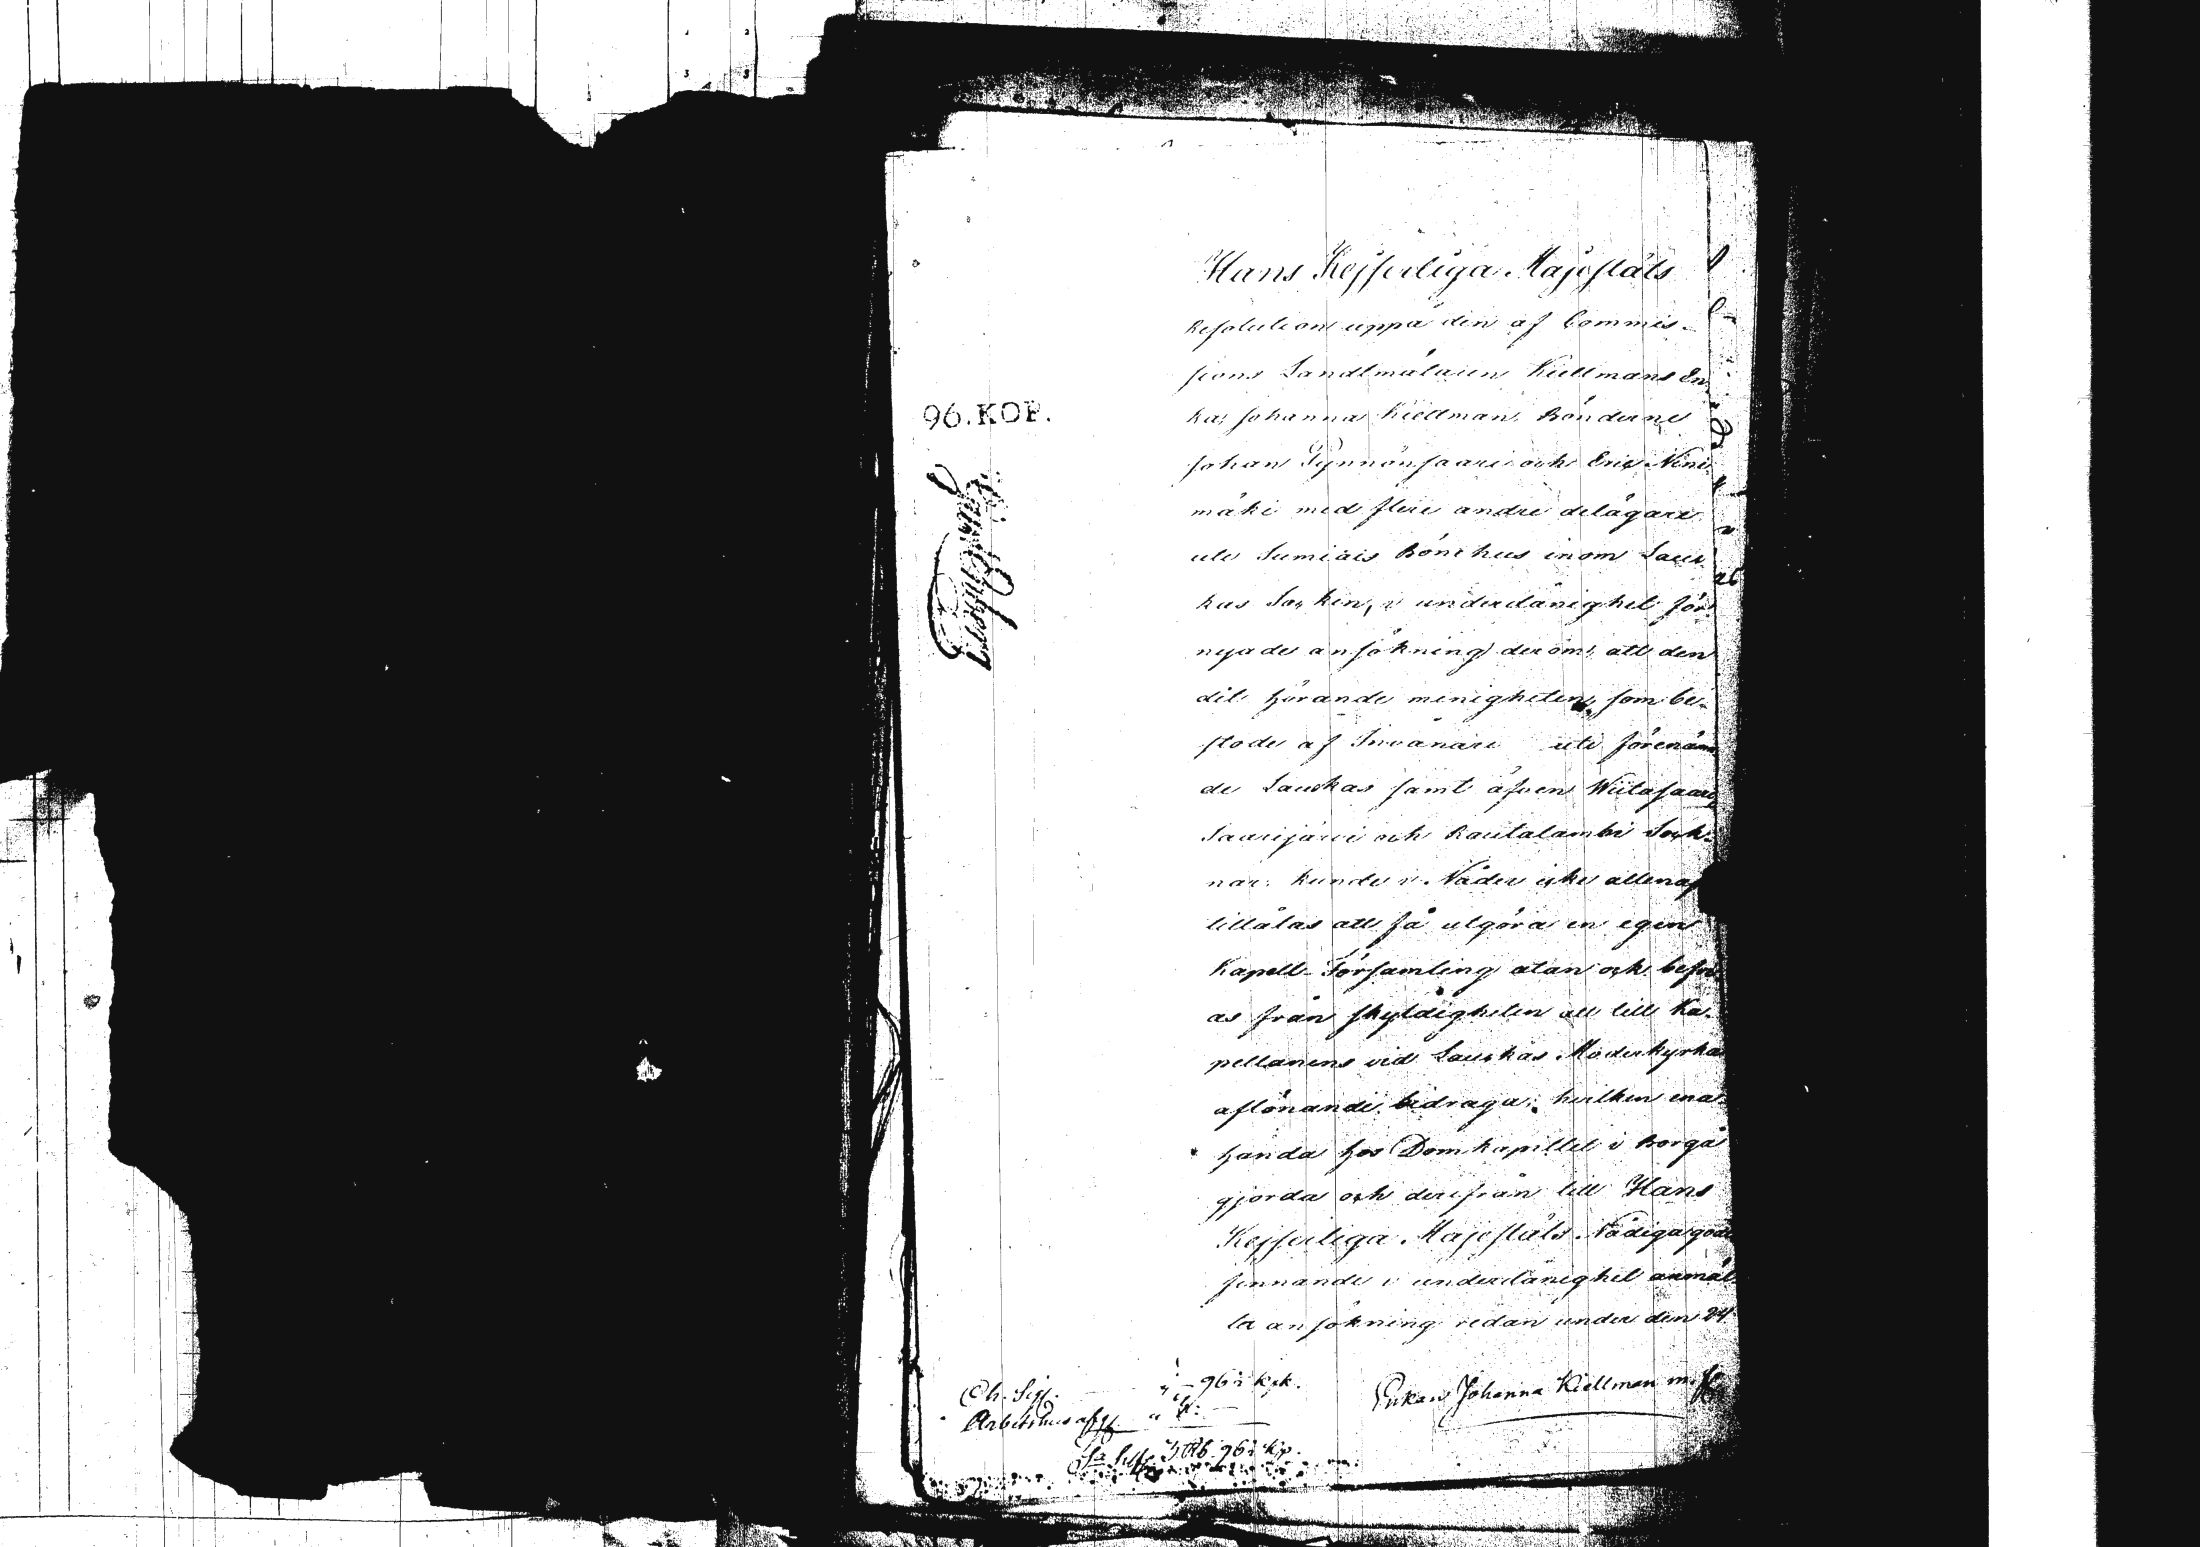 Hans Kejserliga Majestäts
Resolution uppå den af Commis-
sions Landtmätaren Kiellmans En-
ka, Johanna Kiellman, Bönderne
Johan Tynnönsaari och Eric Nini-
mäki med flere andre delägare
uti Sumiais Bönehus inom Lauk-
kas Socken, i underdånighet för-
nyade ansökning derom, att den
dit hörande menigheten, som be-
stode af Invånare uti förenämn-
de Laukkas samt äfven Wiitasaari,
Saarijärvi och Rautalambi Sock-
nar, kunde i Nåder icke allenast
tillåtas att få utgöra en egen
Kapell-Församling utan ock befri-
as från skyldigheten att till Ka-
pellanens vid Laukkas Moderkyrka
aflönande bidraga; hvilken ena-
handa hos Domkapitlet i Borgå
gjorda och derifrån till Hans
Kejserliga Majestäts Nådiga godt
finnande i underdånighet anmäl-
ta ansökning redan under den 24
96. KOP.
Ch. Sigf. 96 kpk.
Arbetshus afgf
Sa Silfv. 3 Rb. 96 kp.
Enkan Johanna Kiellman